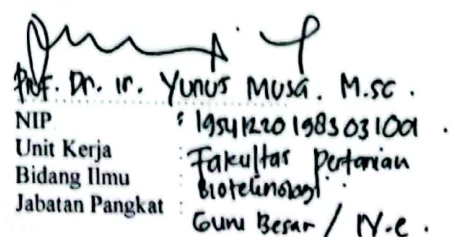 Prof. Dr. Ir. Yunus Musa. M.sc.
NIP : 19541220 198303 1001.
Unit Kerja : Fakultas Pertanian
Bidang Ilmu : Bioteknologi
Jabatan Pangkat : Guru Besar / IV.e.